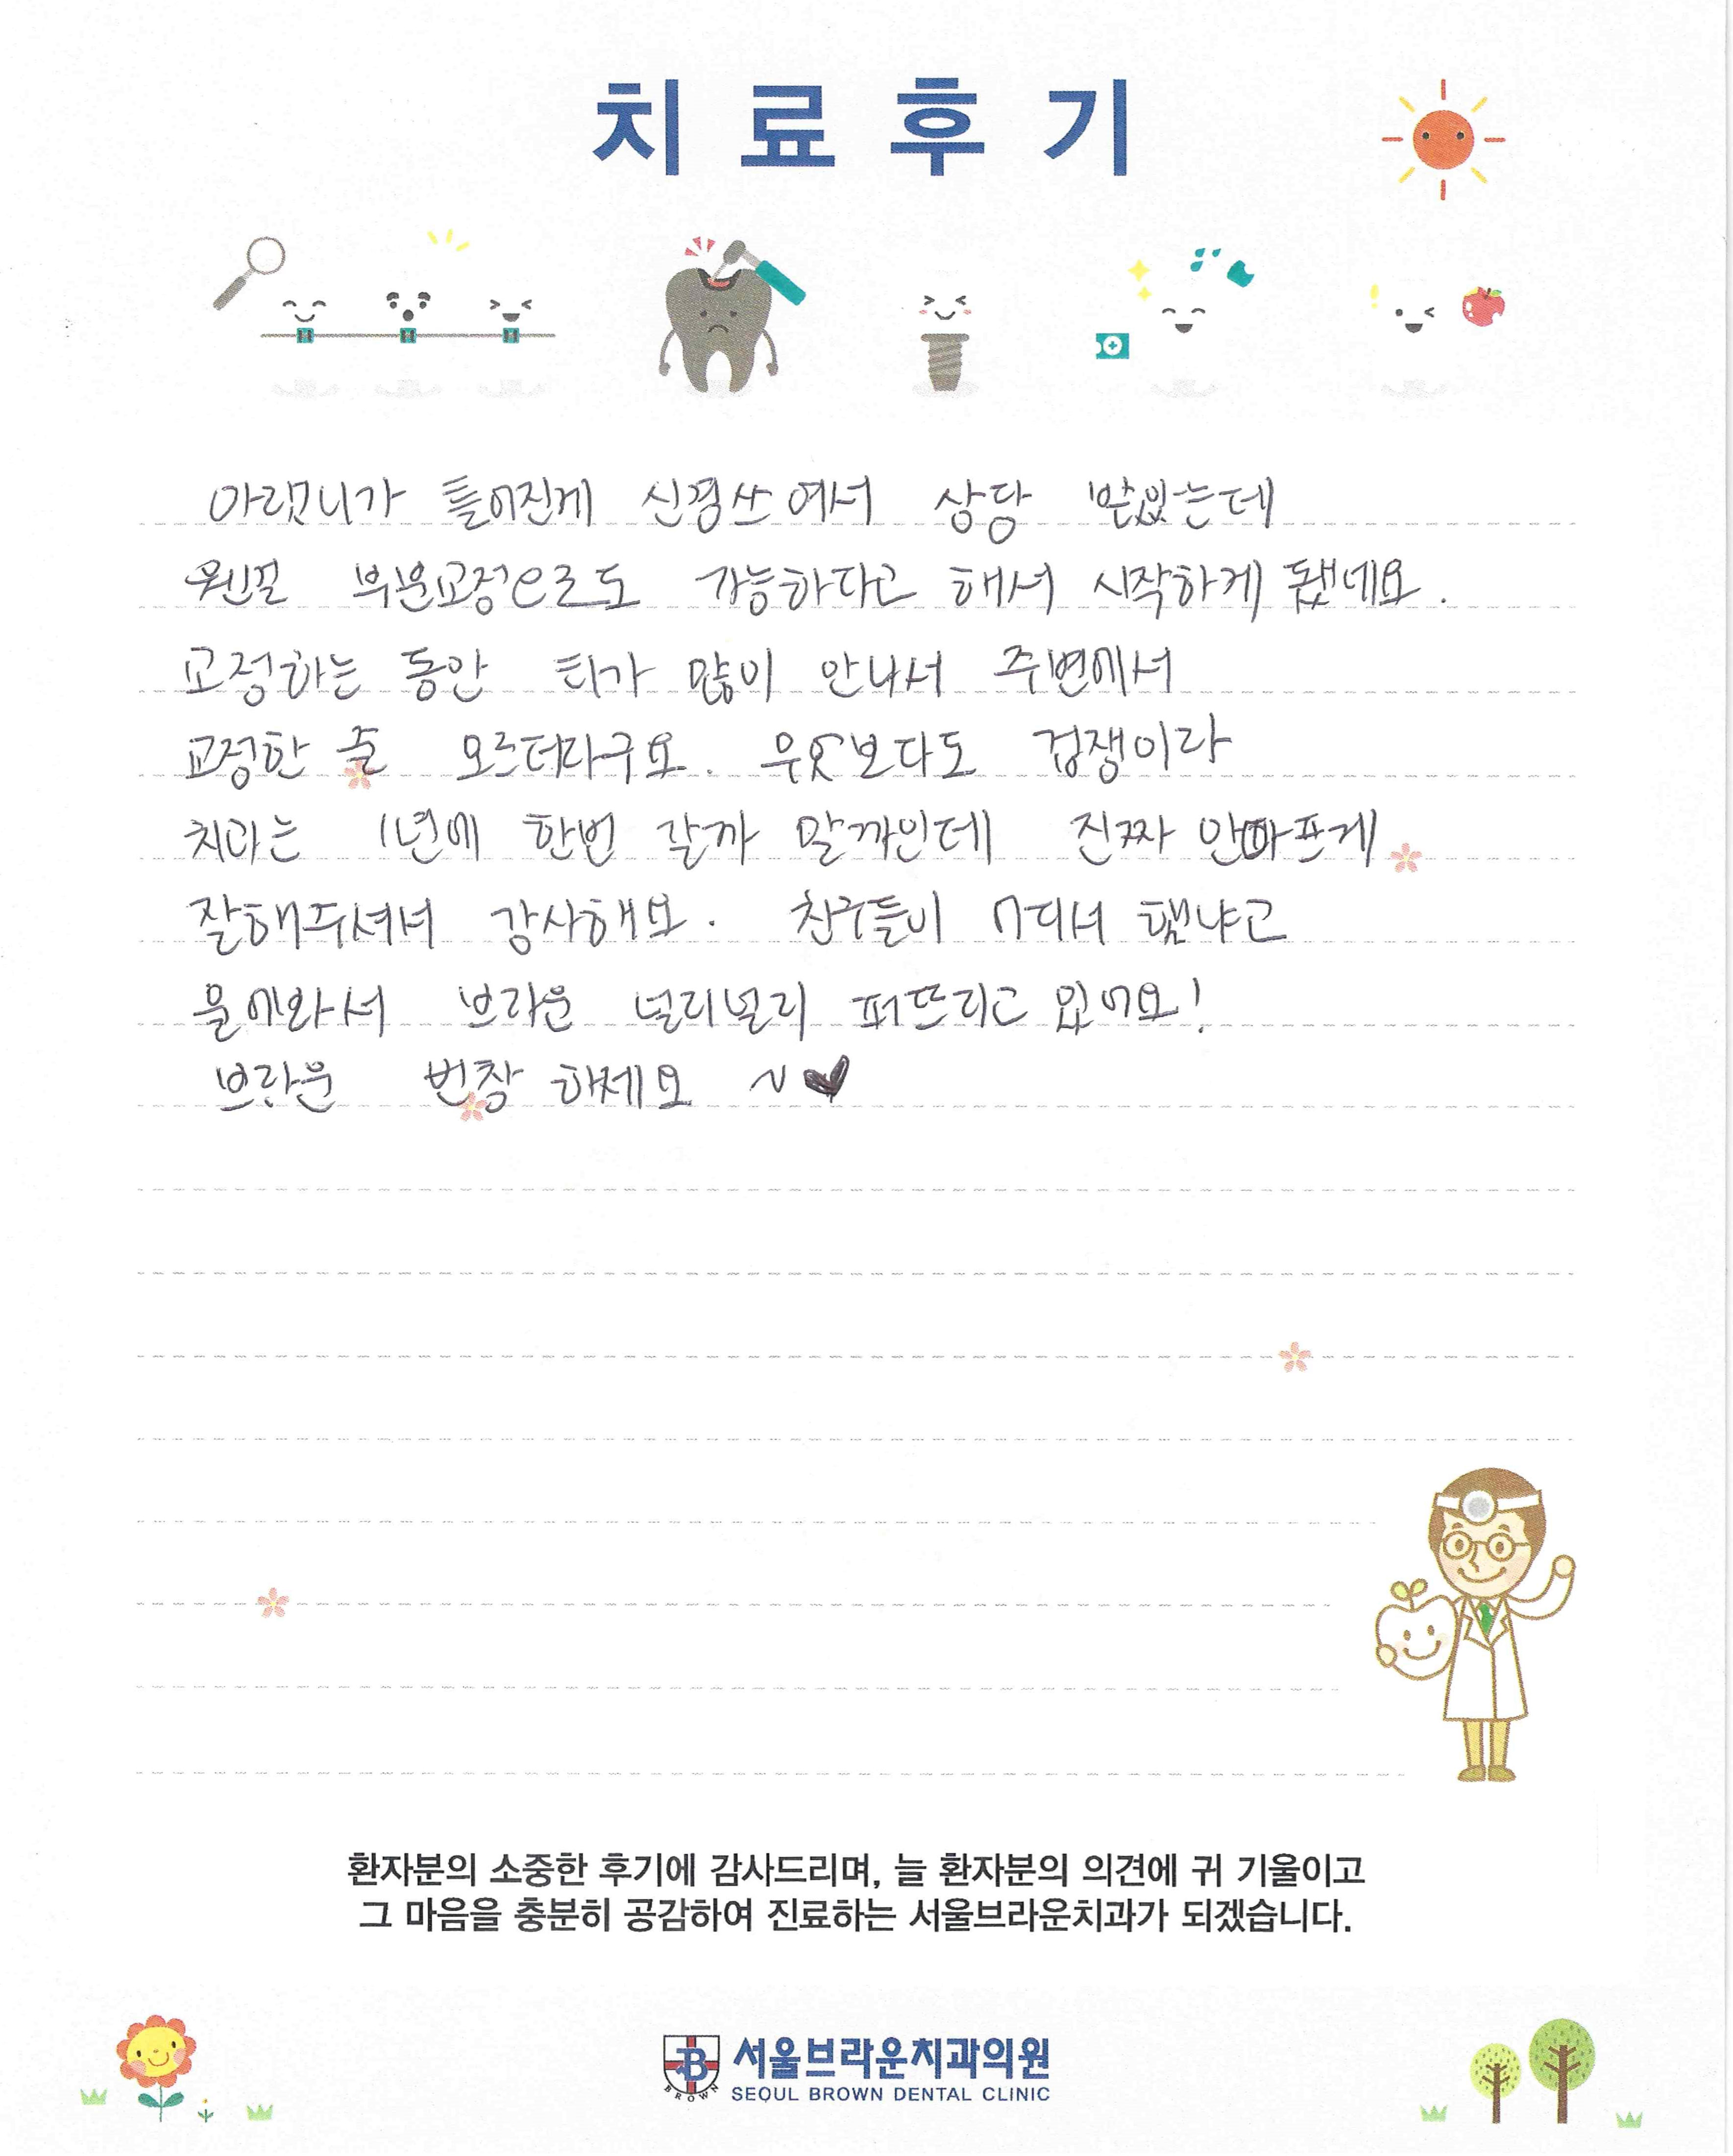 치료후기
아랫니가 틀어진게 신경쓰여서 상담 받았는데
웬걸 부분교정으로도 가능하다고 해서 시작하게 됐네요.
교정하는 동안 티가 많이 안나서 주변에서
교정한 줄 모르더라구요. 무엇보다도 겁쟁이라
치과는 1년에 한번 갈까 말까인데 진짜 안아프게
잘해주셔서 감사해요. 친구들이 어디서 했냐고
물어와서 브라운 널리널리 퍼뜨리고 있어요!
브라운 번창 하세요 ~♥
환자분의 소중한 후기에 감사드리며, 늘 환자분의 의견에 귀 기울이고
그 마음을 충분히 공감하여 진료하는 서울브라운치과가 되겠습니다.
B
BROWN
서울브라운치과의원
SEOUL BROWN DENTAL CLINIC